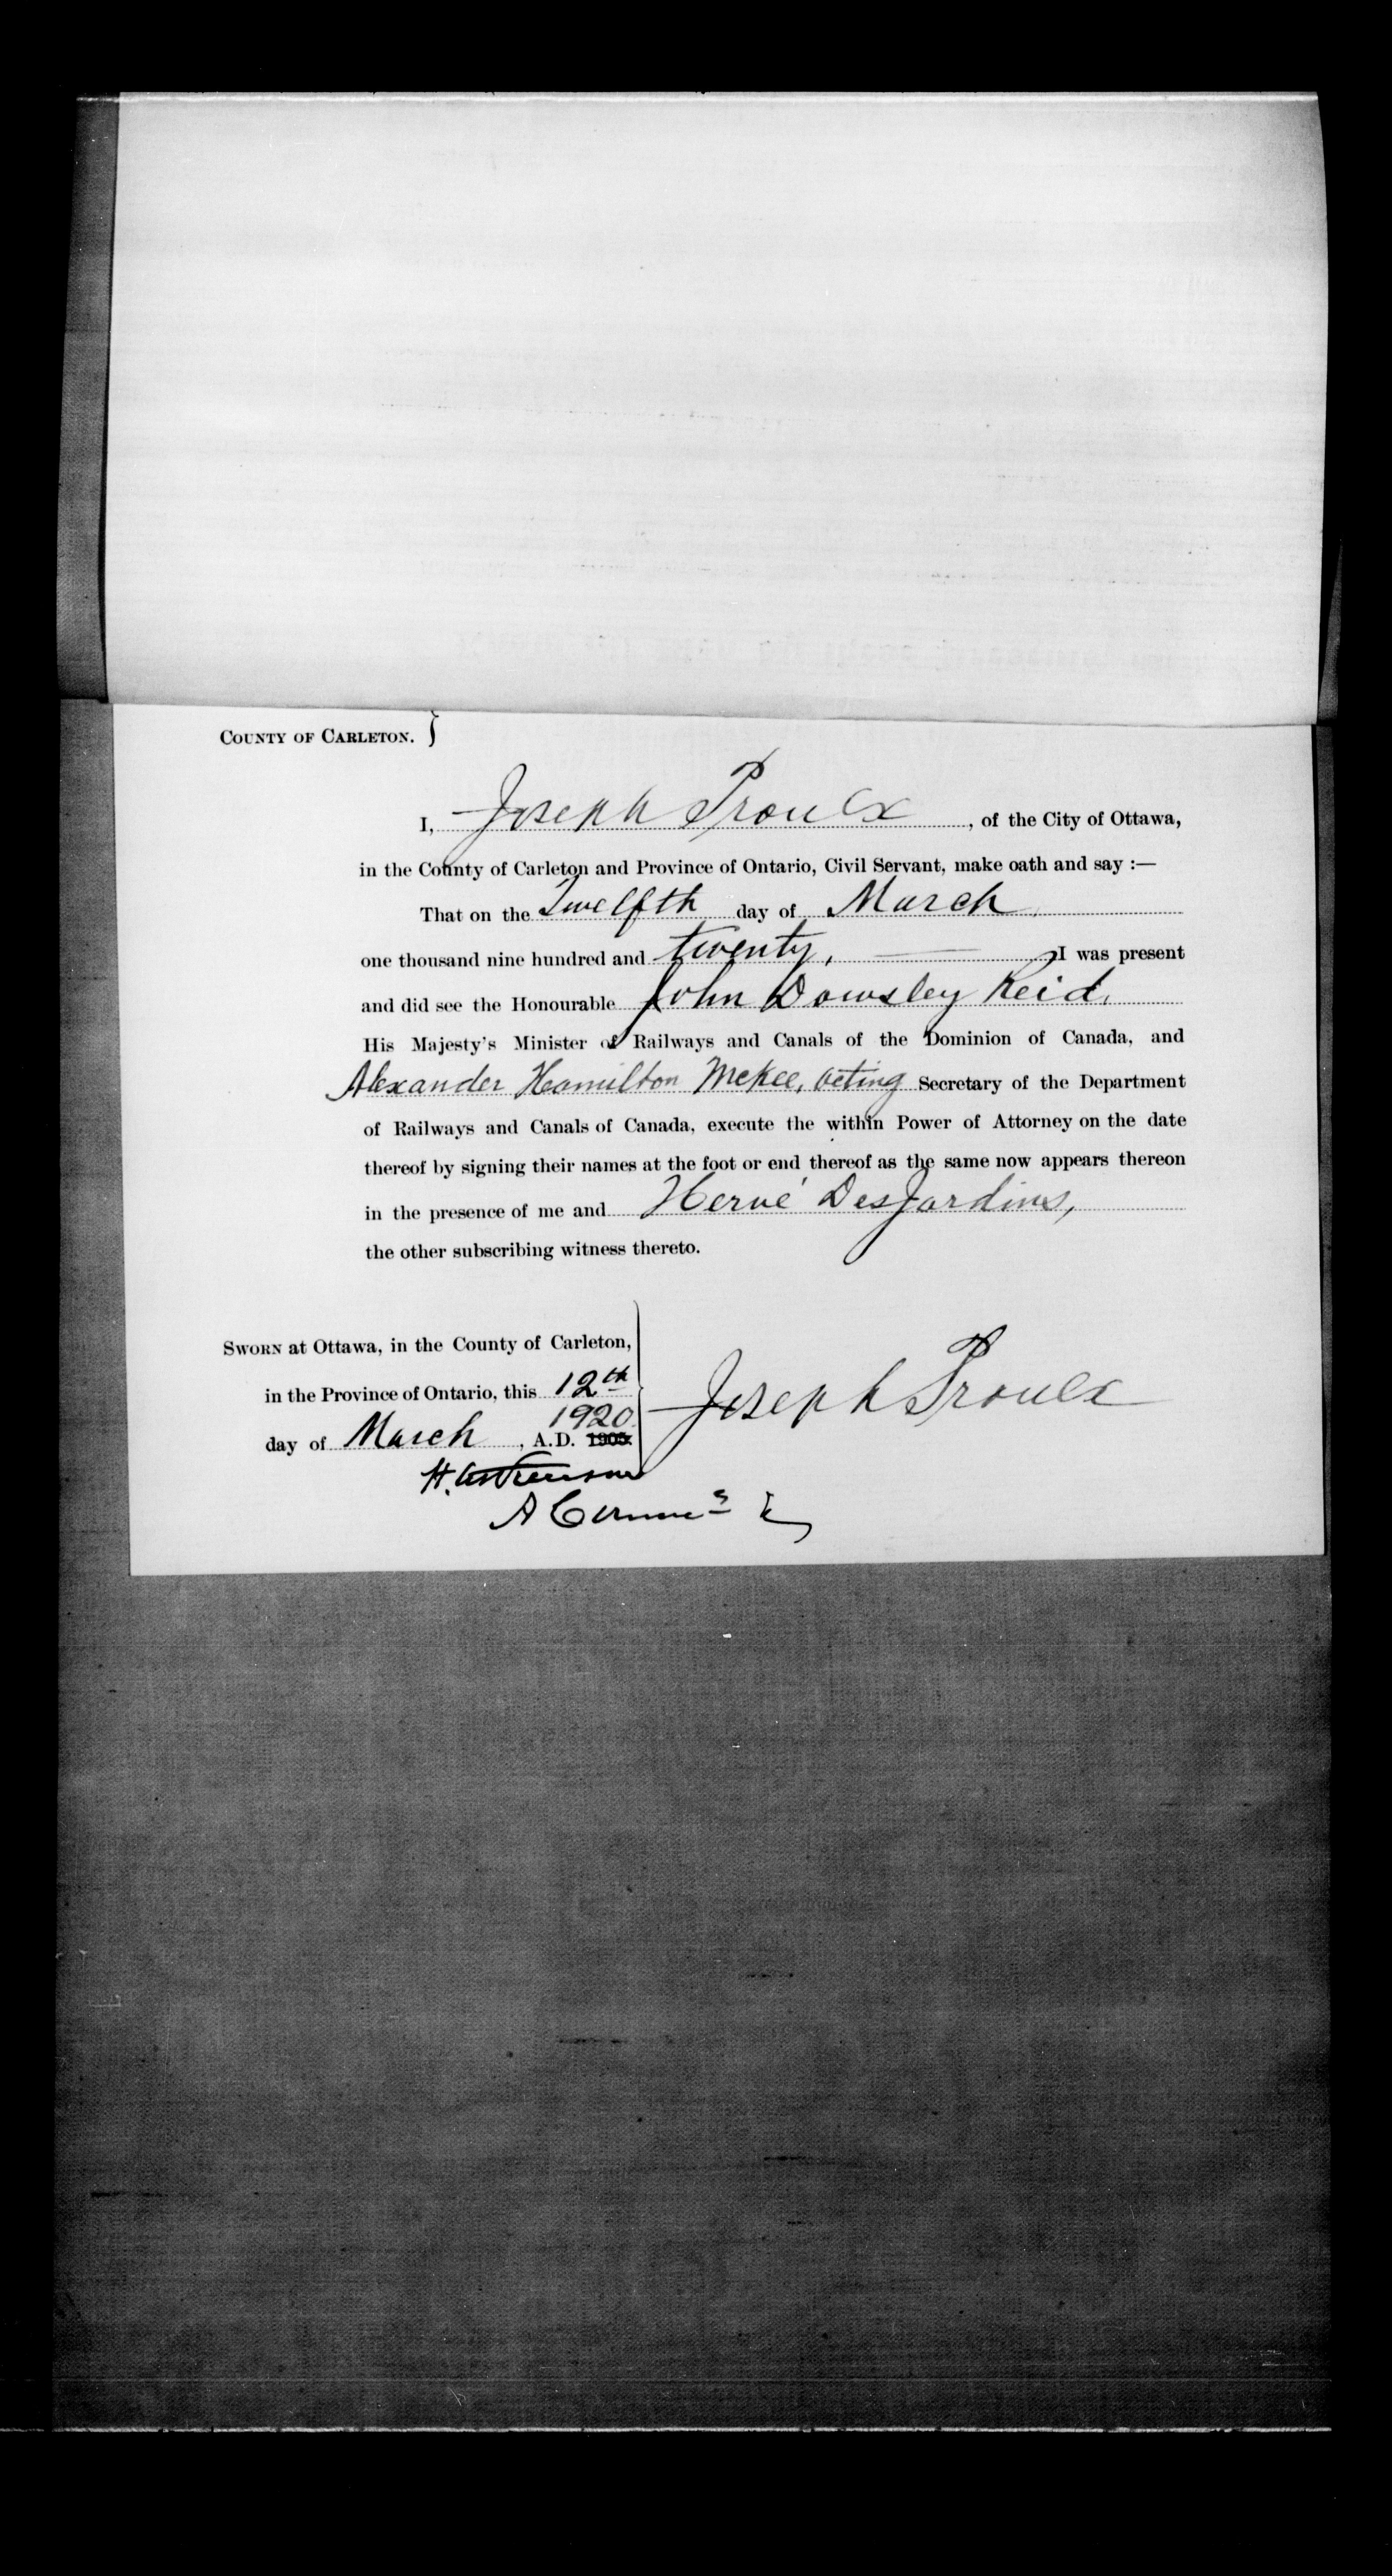 COUNTY OF CARLETON. }
I, Joseph Proulx, of the City of Ottawa,
in the County of Carleton and Province of Ontario, Civil Servant, make oath and say :—
That on the Twelfth day of March
one thousand nine hundred and twenty, I was present
and did see the Honourable John Dowsley Reid,
His Majesty's Minister of Railways and Canals of the Dominion of Canada, and
Alexander Hamilton McKee, Acting Secretary of the Department
of Railways and Canals of Canada, execute the within Power of Attorney on the date
thereof by signing their names at the foot or end thereof as the same now appears thereon
in the presence of me and Hervé DesJardins,
the other subscribing witness thereto.
SWORN at Ottawa, in the County of Carleton,
in the Province of Ontario, this 12th
1920
day of March, A.D. 1905.
Joseph Proulx
A